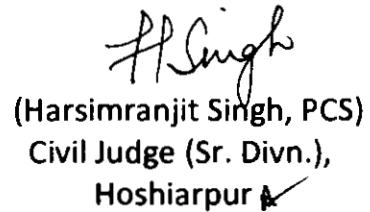 HSingh
(Harsimranjit Singh, PCS)
Civil Judge (Sr. Divn.),
Hoshiarpur